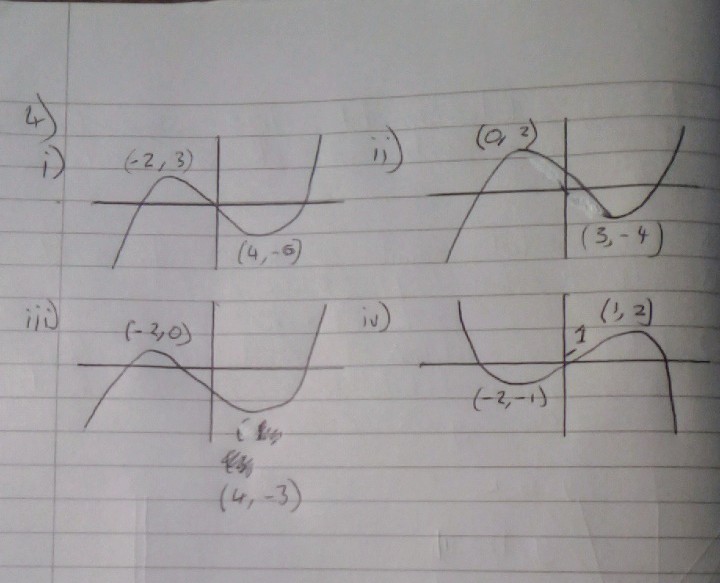 4)
i) (-2, 3)
(4, -6)
ii) (0, 2)
(3, -4)
iii) (-2, 0)
(4, -3)
iv) (1, 2)
1
(-2, -1)